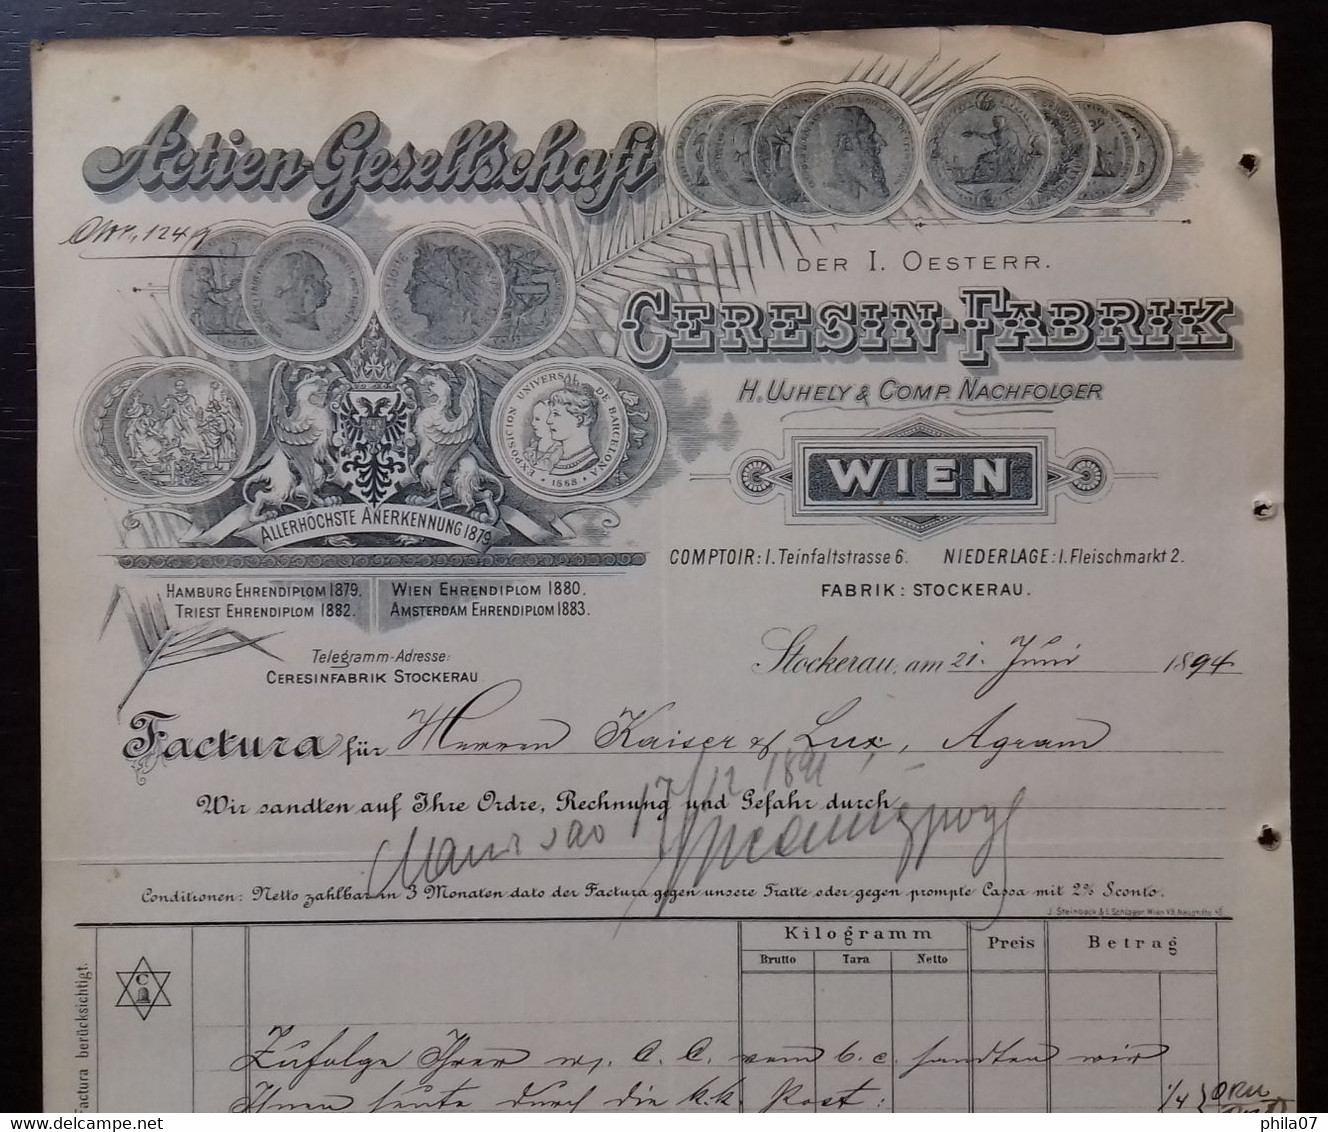 Actien-Gesellschaft
DER I. OESTERR.
CERESIN-FABRIK
H. UJHELY & COMP. NACHFOLGER
WIEN
EXPOSICION UNIVERSAL DE BARCELONA
1888
ALLERHÖCHSTE ANERKENNUNG 1879
COMPTOIR: I. Teinfaltstrasse 6. NIEDERLAGE: I. Fleischmarkt 2.
FABRIK: STOCKERAU.
HAMBURG EHRENDIPLOM 1879. WIEN EHRENDIPLOM 1880.
TRIEST EHRENDIPLOM 1882. AMSTERDAM EHRENDIPLOM 1883.
Telegramm-Adresse:
CERESINFABRIK STOCKERAU
Stockerau, am 21. Juni 1894
Factura für Herren Kaiser & Lux, Agram
Wir sandten auf Ihre Ordre, Rechnung und Gefahr durch
Conditionen: Netto zahlbar in 3 Monaten dato der Factura gegen unsere Tratte oder gegen prompte Cassa mit 2% Sconto.
Kilogramm Preis Betrag
Brutto Tara Netto
C
Factura berücksichtigt.
Zufolge Ihrer w/ C. C. vom 6. c. sandten wir
Ihnen heute durch die k.k. Post:
phila07